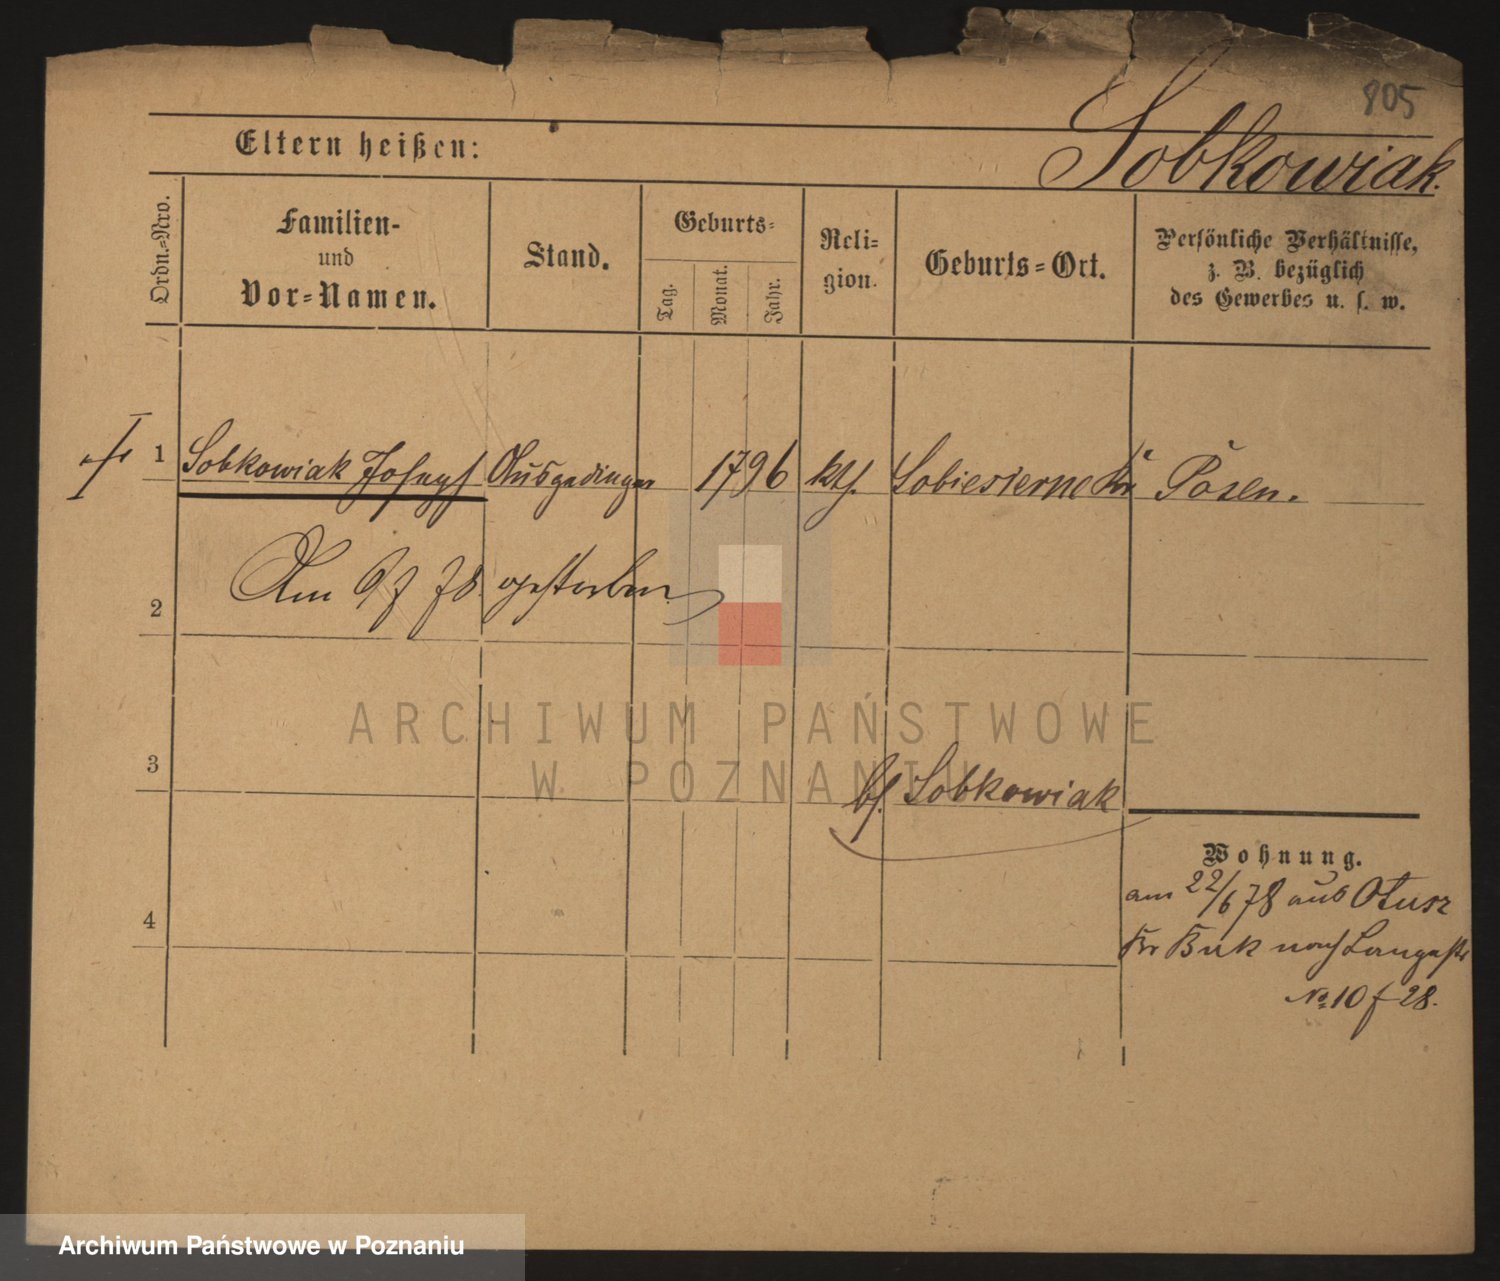 805
Eltern heißen:
Sobkowiak.
Ordn.-Nro.
Familien-
und
Vor-Namen.
Stand.
Geburts-
Tag.
Monat.
Jahr.
Reli-
gion.
Geburts-Ort.
Persönliche Verhältnisse,
z. B. bezüglich
des Gewerbes u. s. w.
1 Sobkowiak Joseph Ausgedinger 1796 kth. Sobiesierne Kr Posen.
2
Am 9/7 78. gestorben
ARCHIWUM PAŃSTWOWE
W POZNANIU
3
bf. Sobkowiak
Wohnung.
am 22/6 78 aus Otusz
Kr Buk nach Langestr
No 10 f 28.
4
Archiwum Państwowe w Poznaniu